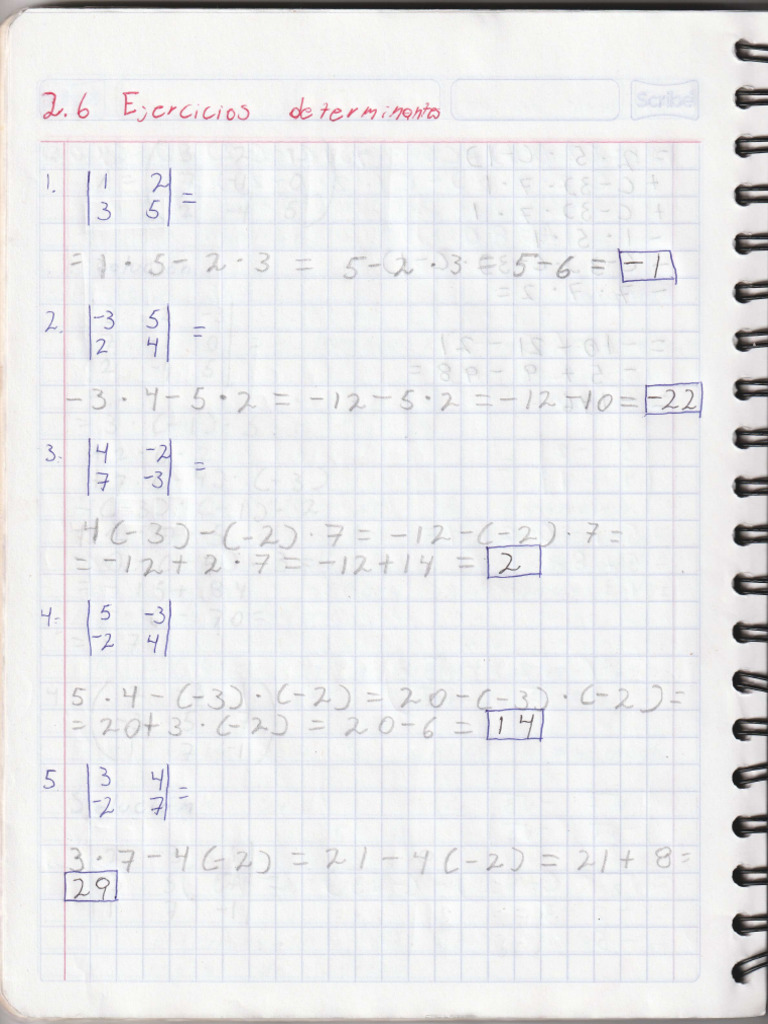 2.6 Ejercicios determinantes
Scribe
1. |1 2| =
|3 5|
= 1 · 5 - 2 · 3 = 5 - (2 · 3 = 5 - 6 = -1
2. |-3 5| =
|2 4|
-3 · 4 - 5 · 2 = -12 - 5 · 2 = -12 - 10 = -22
3. |4 -2| =
|7 -3|
4(-3) - (-2) · 7 = -12 - (-2) · 7 =
= -12 + 2 · 7 = -12 + 14 = 2
4. |5 -3|
|-2 4|
5 · 4 - (-3) · (-2) = 20 - (-3) · (-2) =
= 20 + 3 · (-2) = 20 - 6 = 14
5 |3 4| =
|-2 7|
3 · 7 - 4(-2) = 21 - 4(-2) = 21 + 8 =
29